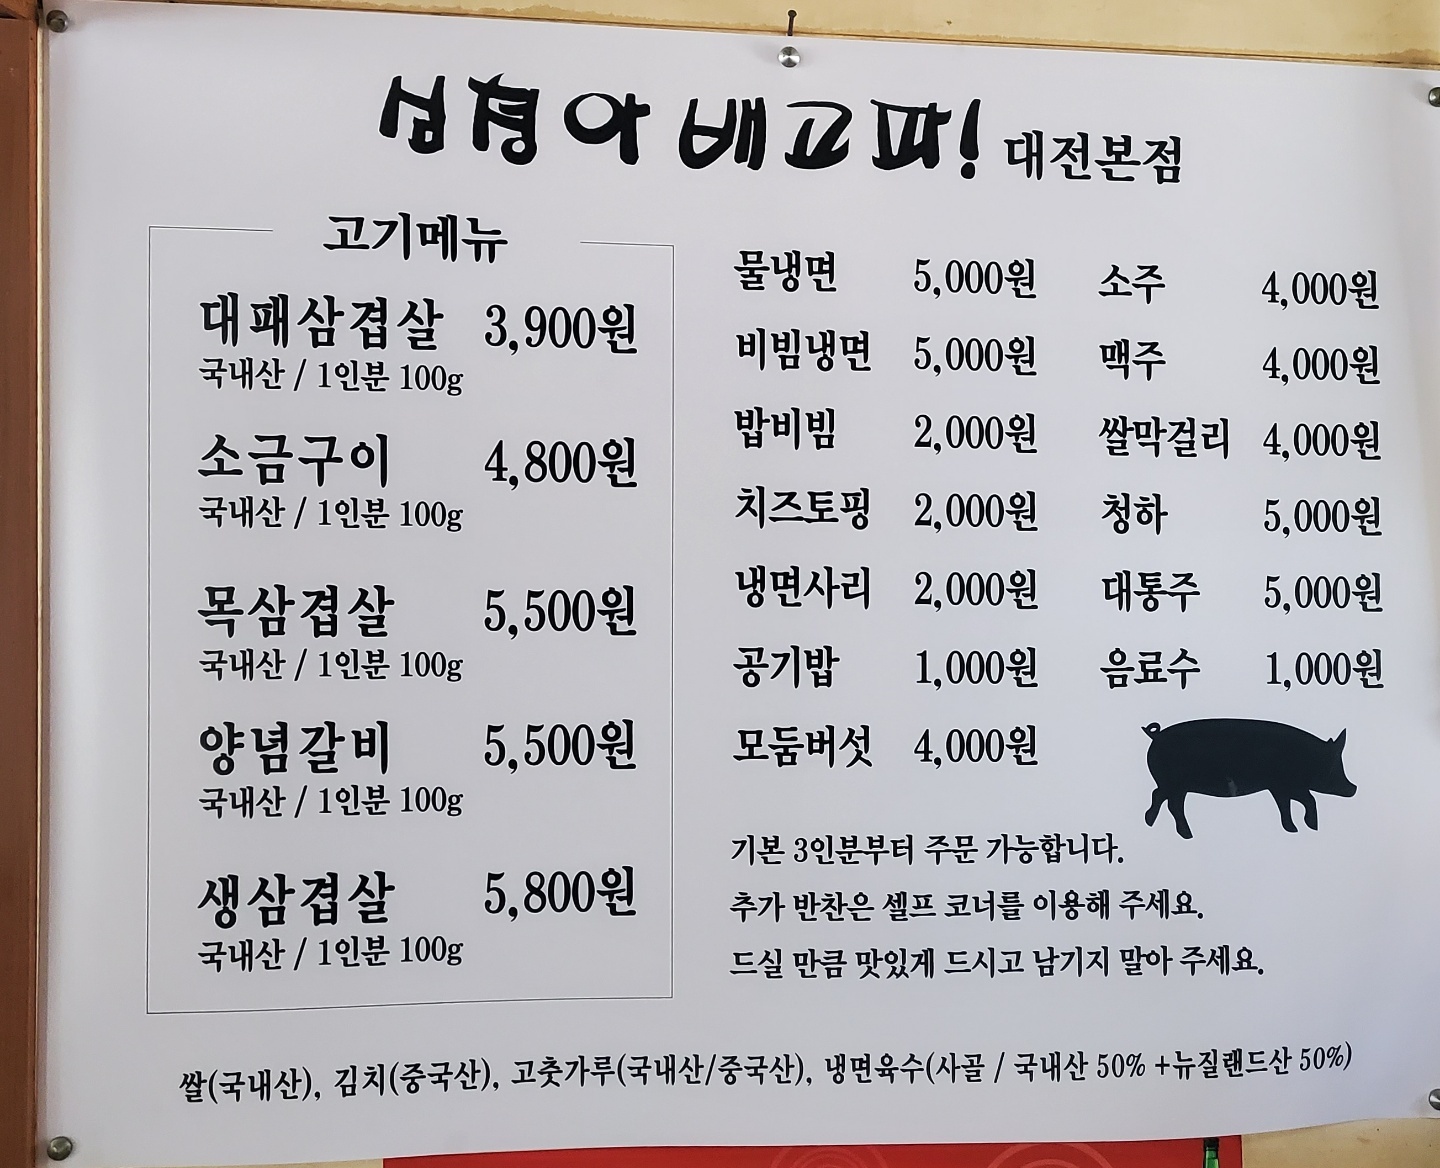 섬경아 배고파! 대전본점
고기메뉴
대패삼겹살 3,900원
국내산 / 1인분 100g
소금구이 4,800원
국내산 / 1인분 100g
목삼겹살 5,500원
국내산 / 1인분 100g
양념갈비 5,500원
국내산 / 1인분 100g
생삼겹살 5,800원
국내산 / 1인분 100g
물냉면 5,000원
비빔냉면 5,000원
밥비빔 2,000원
치즈토핑 2,000원
냉면사리 2,000원
공기밥 1,000원
모둠버섯 4,000원
소주 4,000원
맥주 4,000원
쌀막걸리 4,000원
청하 5,000원
대통주 5,000원
음료수 1,000원
기본 3인분부터 주문 가능합니다.
추가 반찬은 셀프 코너를 이용해 주세요.
드실 만큼 맛있게 드시고 남기지 말아 주세요.
쌀(국내산), 김치(중국산), 고춧가루(국내산/중국산), 냉면육수(사골 / 국내산 50% +뉴질랜드산 50%)